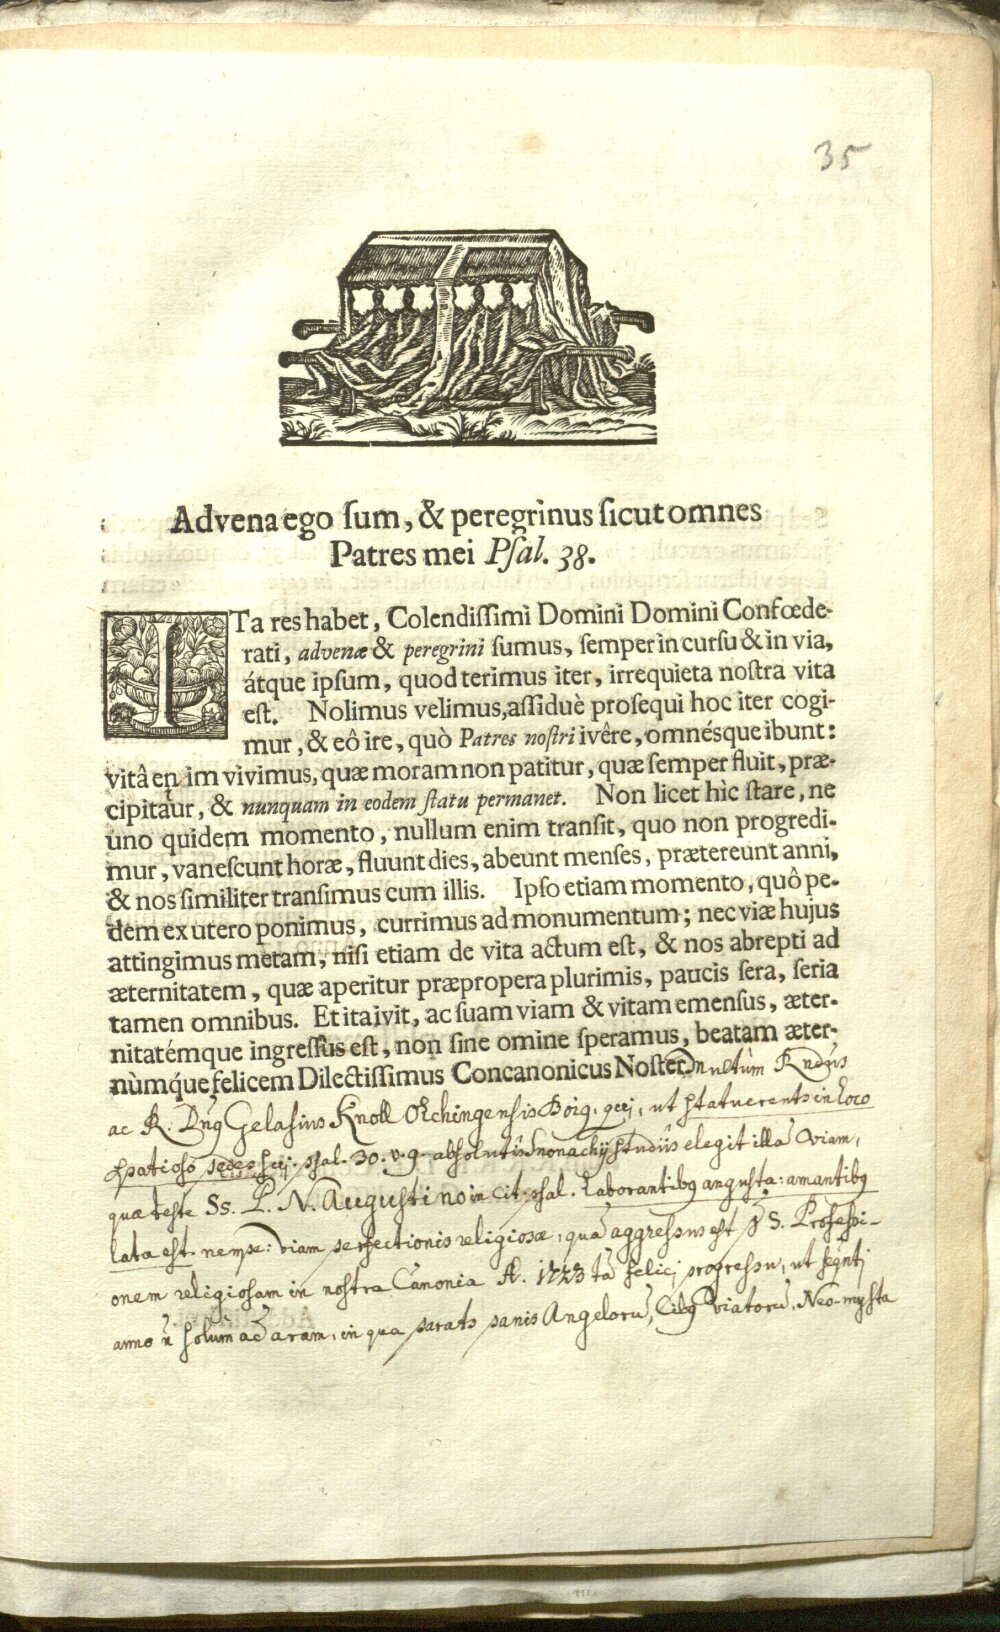 35
Advena ego ſum, & peregrinus ſicut omnes
Patres mei Pſal. 38.
ITa res habet, Colendiſſimi Domini Domini Confœde-
rati, advenæ & peregrini ſumus, ſemper in curſu & in via,
átque ipſum, quod terimus iter, irrequieta noſtra vita
eſt. Nolimus velimus, aſſiduè proſequi hoc iter cogi-
mur, & eô ire, quò Patres noſtri ivêre, omnésque ibunt:
vitâ enim vivimus, quæ moram non patitur, quæ ſemper fluit, præ-
cipitatur, & nunquam in eodem ſtatu permanet. Non licet hìc ſtare, ne
uno quidem momento, nullum enim tranſit, quo non progredi-
mur, vaneſcunt horæ, fluunt dies, abeunt menſes, prætereunt anni,
& nos ſimiliter tranſimus cum illis. Ipſo etiam momento, quô pe-
dem ex utero ponimus, currimus ad monumentum; nec viæ hujus
attingimus metam, niſi etiam de vita actum eſt, & nos abrepti ad
æternitatem, quæ aperitur præpropera plurimis, paucis ſera, ſeria
tamen omnibus. Et ita ivit, ac ſuam viam & vitam emenſus, æter-
nitatémque ingreſſus eſt, non ſine omine ſperamus, beatam æter-
nùmque felicem Dilectiſſimus Concanonicus Noſter Multùm Rndus
ac R. Dnus Gelasius Knoll Boiq, qui, ut statueret in loco
spatioso pedes suos psal. 30. v. 9. absolutis Monachij studiis elegit illā viam,
quæ teste Ss. P. N. Augustino in cit. psal. laborantibq angusta: amantibq
lata est. nempe: viam perfectionis religiosæ, quā aggressus est p S. Professi-
onem religiosam in nostra Canonia A. 1723 tā felici progressu, ut seqnti
anno n̄ solùm ad aram, in qua parata panis Angelorū, cibq viatorū, Neo-mysta